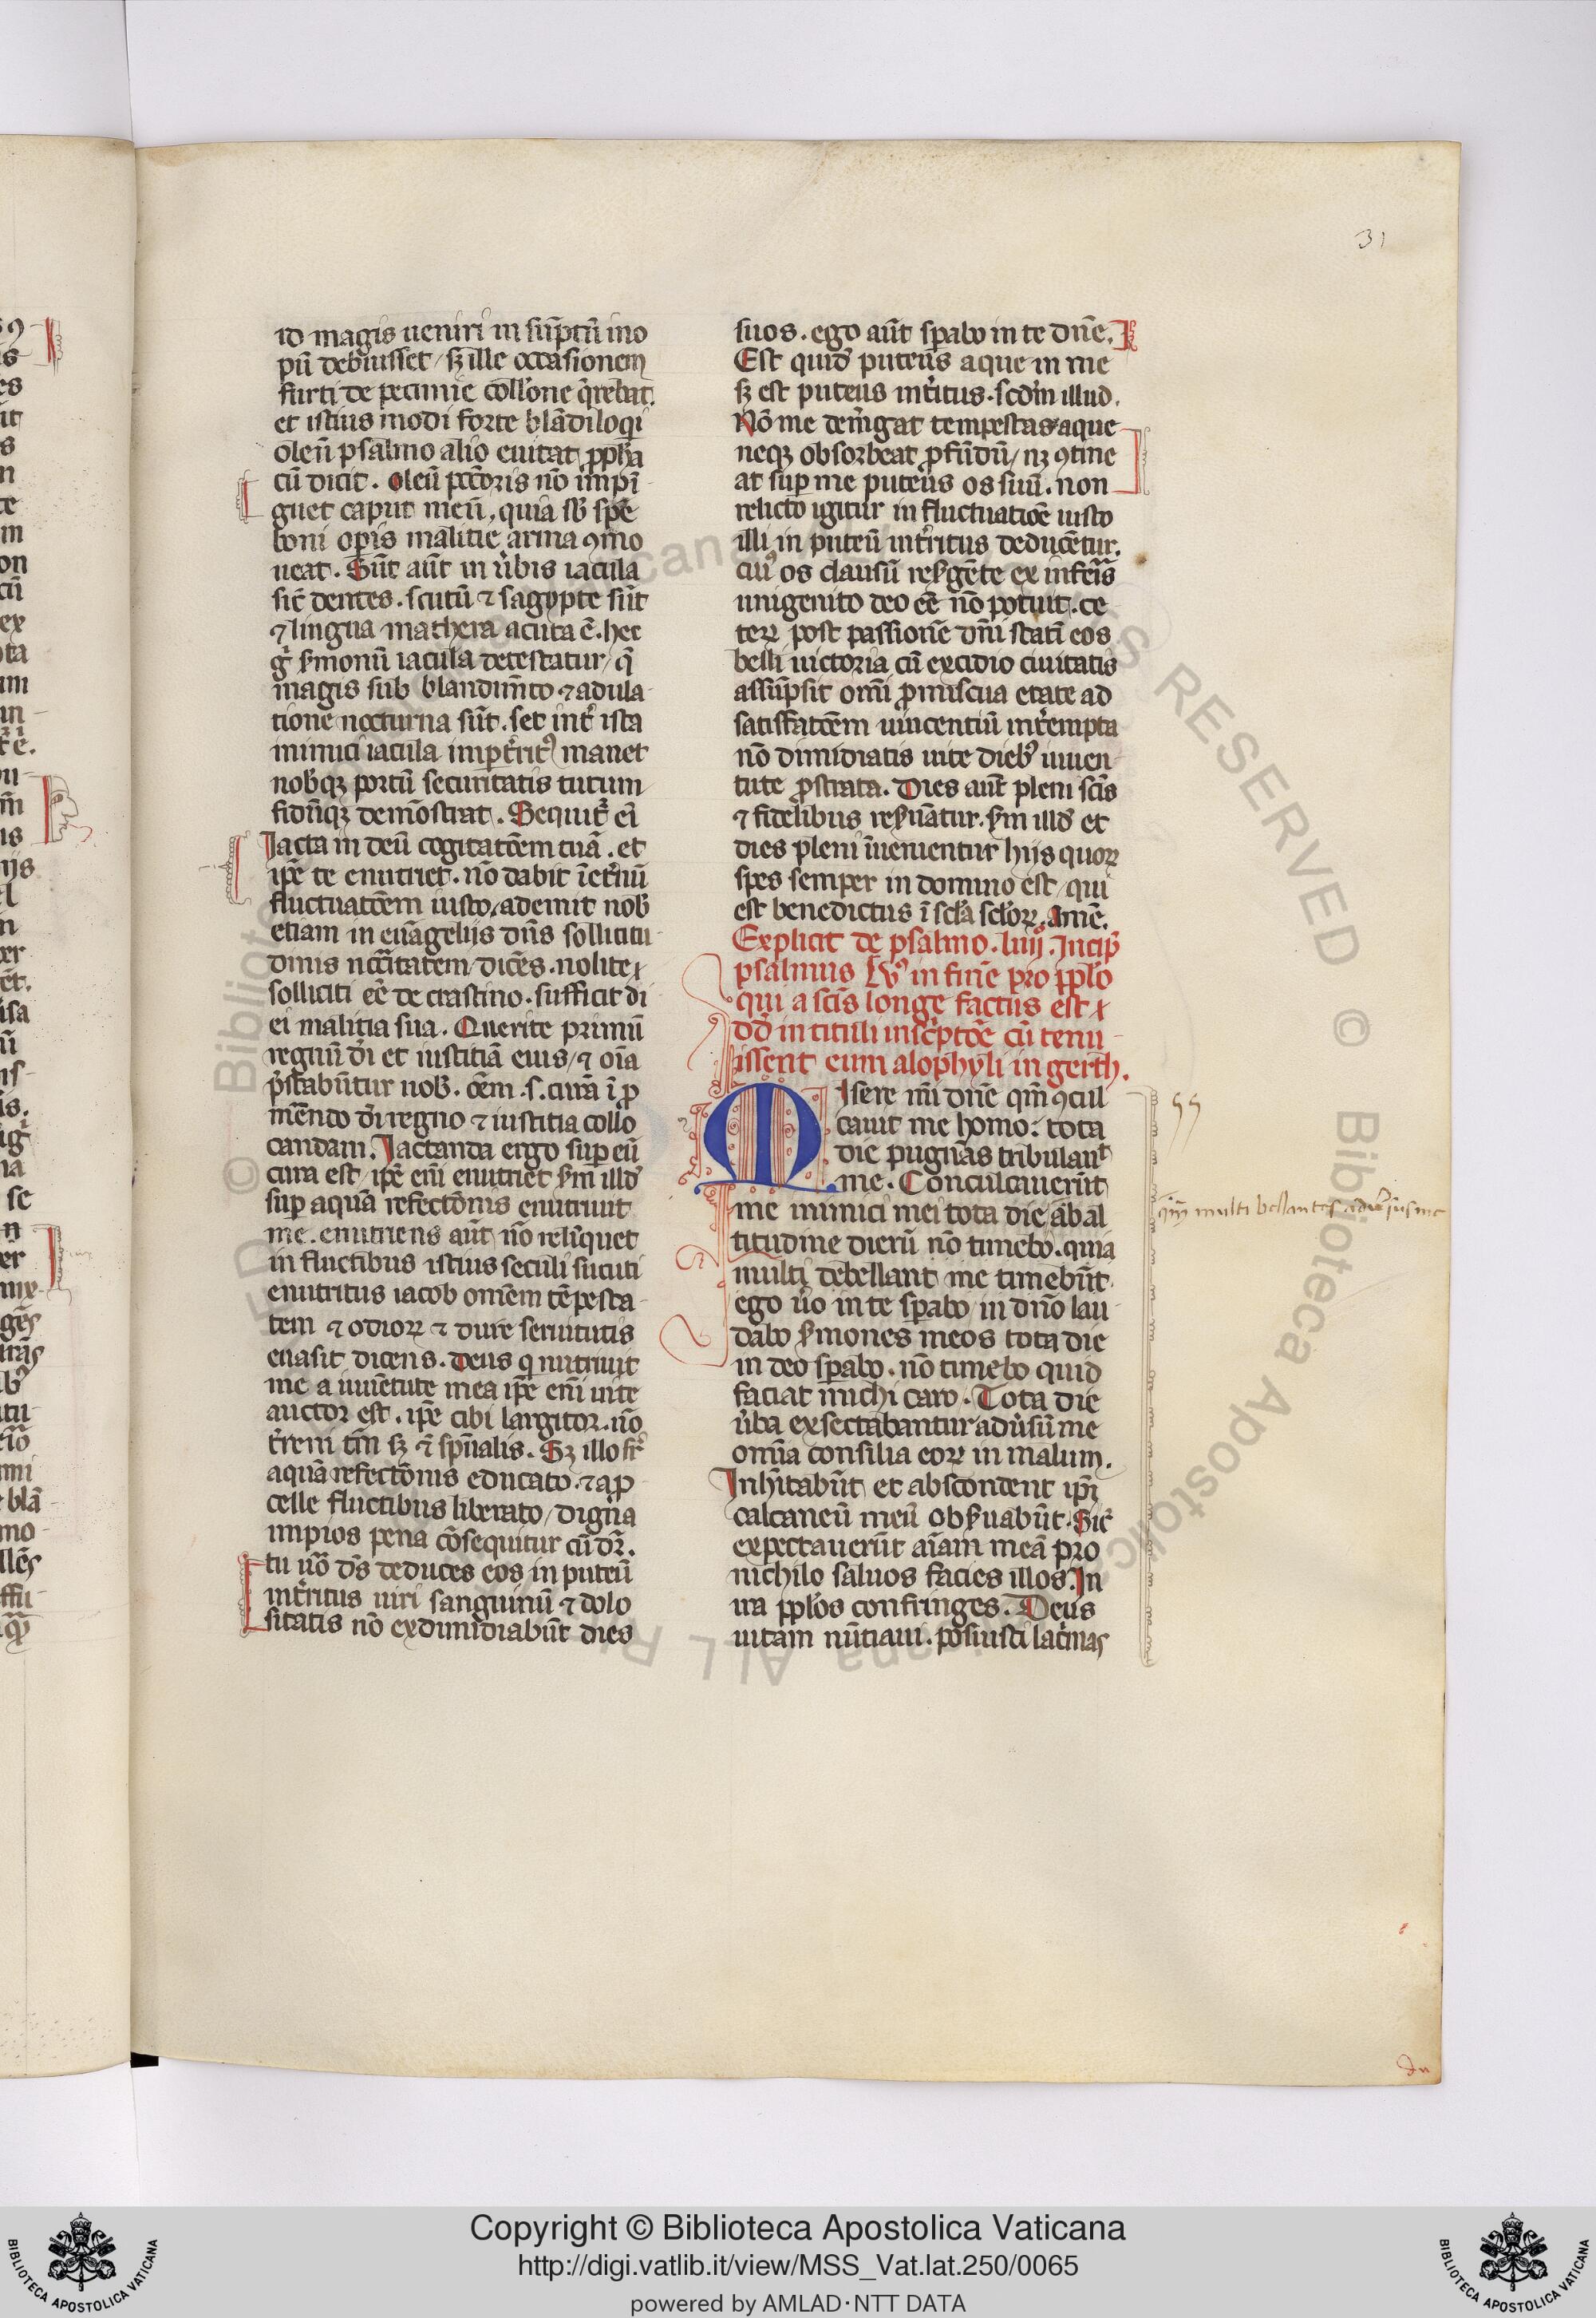 31
id magis ueniri in sūptū ino
pū debuisset / sꝫ ille occasionem
furti de pecunie coll'one q̄rebat.
et istius modi forte blādiloqi
oleū psalmo alio euitat ꝓph̄a
cū dicit . oleū pctōris nō īmpī
guet caput meū , quia sb̄ spē
boni oꝑis malitie arma ꝯmo
ueat . Sūt aūt in ūbis iacula
sic̄ dentes . scutū ⁊ sagypte sūt
⁊ lingua mathera acuta ē . hec
g̊ ẜmonū iacula detestatur / q̄
magis sub blandim̄to ⁊ adula
tione nocturna sūt . set int̄ ista
inimici iacula imꝑt̄ritꝰ manet
nob̄qꝫ portū securitatis tutum
fidūqꝫ demōstrat . Sequit̄ eī
Iacta in deū cogitatōem tuā . et
ip̄e te enutriet . nō dabit īet̄nū
fluctuatōem iusto / ademit nob̄
etiam in euāgelijs dn̄s sollicitu
dinis nc̄citatem / dicēs . nolite
solliciti eē de crastino . sufficit di
ei malitia sua . Querite primū
regnū dī et iustitiā eius / ⁊ oīa
p̄stabūtur nob̄ . oēm .s. curā ī ꝓ
mēndo dī regno ⁊ iustitia collo
candam . Iactanda ergo suꝑ eū
cura est / ip̄e eni enutriet ẜm illd̄
suꝑ aquā refectōnis enutriuit
me . enutriens aūt nō relīquet
in fluctibus istius seculi sucuti
enutritus iacob omēm tēpesta
tem ⁊ odioꝝ ⁊ dure seruitutis
euasit dicens . Deus q nutriuit
me a iuuētute mea ip̄e enī uite
auctor est . ip̄e cibi largitor . nō
t̄reni tm̄ sꝫ ⁊ sp̄ualis . Sꝫ illo sr̄
aquā refectōnis educato . ⁊ a ꝓ
celle fluctibus liberato / digna
impios pena cōsequitur cū dr̄ .
tu uō ds̄ deduces eos in puteū
int̄ritus uiri sanguinū ⁊ dolo
sitatis nō exdimidiabūt dies
suos . ego aūt sꝑabo in te dn̄e .
Est quid̄ puteus aque in me
sꝫ est puteus int̄itus . scd̄m illud .
Nō me dem̄gat tempestas aque
neqꝫ obsorbeat ꝓfūdū / nꝫ ꝯtine
at suꝑ me puteus os suū . non
relicto igitur in fluctuatiōe iusto
illi in puteū int̄ritus deducētur .
cuiꝰ os clausū resgēte ex infeīs
unigenito deo eē nō potuit . ce
teꝝ post passionē dn̄i statī eos
belli uictoria cū excidio ciuitatis
assūpsit omī ꝓmiscua etate ad
satisfatōem uincentiū int̄rempta
nō dimidiatis uite dieb̄ iuuen
tute ꝓstrata . Dies aūt pleni scīs
⁊ fidelibus resuātur . ẜm illd̄ et
dies pleni īuenientur hijs quoꝝ
spes semper in domino est / qui
est benedictus ī scl̄a scl̄oꝝ . Amē .
Explicit de psalmo . liiij . Incip̄
psalmus Lvꝰ in finē pro ppl̄o
qui a scīs longe factus est
dd̄ in tituli insc̄ptōe cū tenu
issent eum alophyli in gerth .
Misere mī dn̄e qm̄ ꝯcul
cauit me homo : tota
die pugnās tribulauit
me . Conculcauerūt
me inimici mei tota die āb al
titudine dierū nō timebo . quia
multi debellant me timebūt
ego ūo in te sꝑabo / in dn̄o lau
dabo ẜmones meos tota die
in deo sꝑabo . nō timebo quid
faciat michi caro . Tota die
ūba exsectabantur adūsū me
omīa consilia eoꝝ in malum .
Inhītabūt et abscondent ip̄i
calcaneū meū obẜuabūt . Sic̄
expectauerūt aīam meā pro
nichilo saluos facies illos . In
ira ppl̄os confringes . Deus
uitam nūtiaui . posuisti lac̄mas
55
qm̄ multi bellantes aduersus me
Copyright © Biblioteca Apostolica Vaticana
http://digi.vatlib.it/view/MSS_Vat.lat.250/0065
powered by AMLAD·NTT DATA
BIBLIOTECA APOSTOLICA VATICANA
BIBLIOTECA APOSTOLICA VATICANA